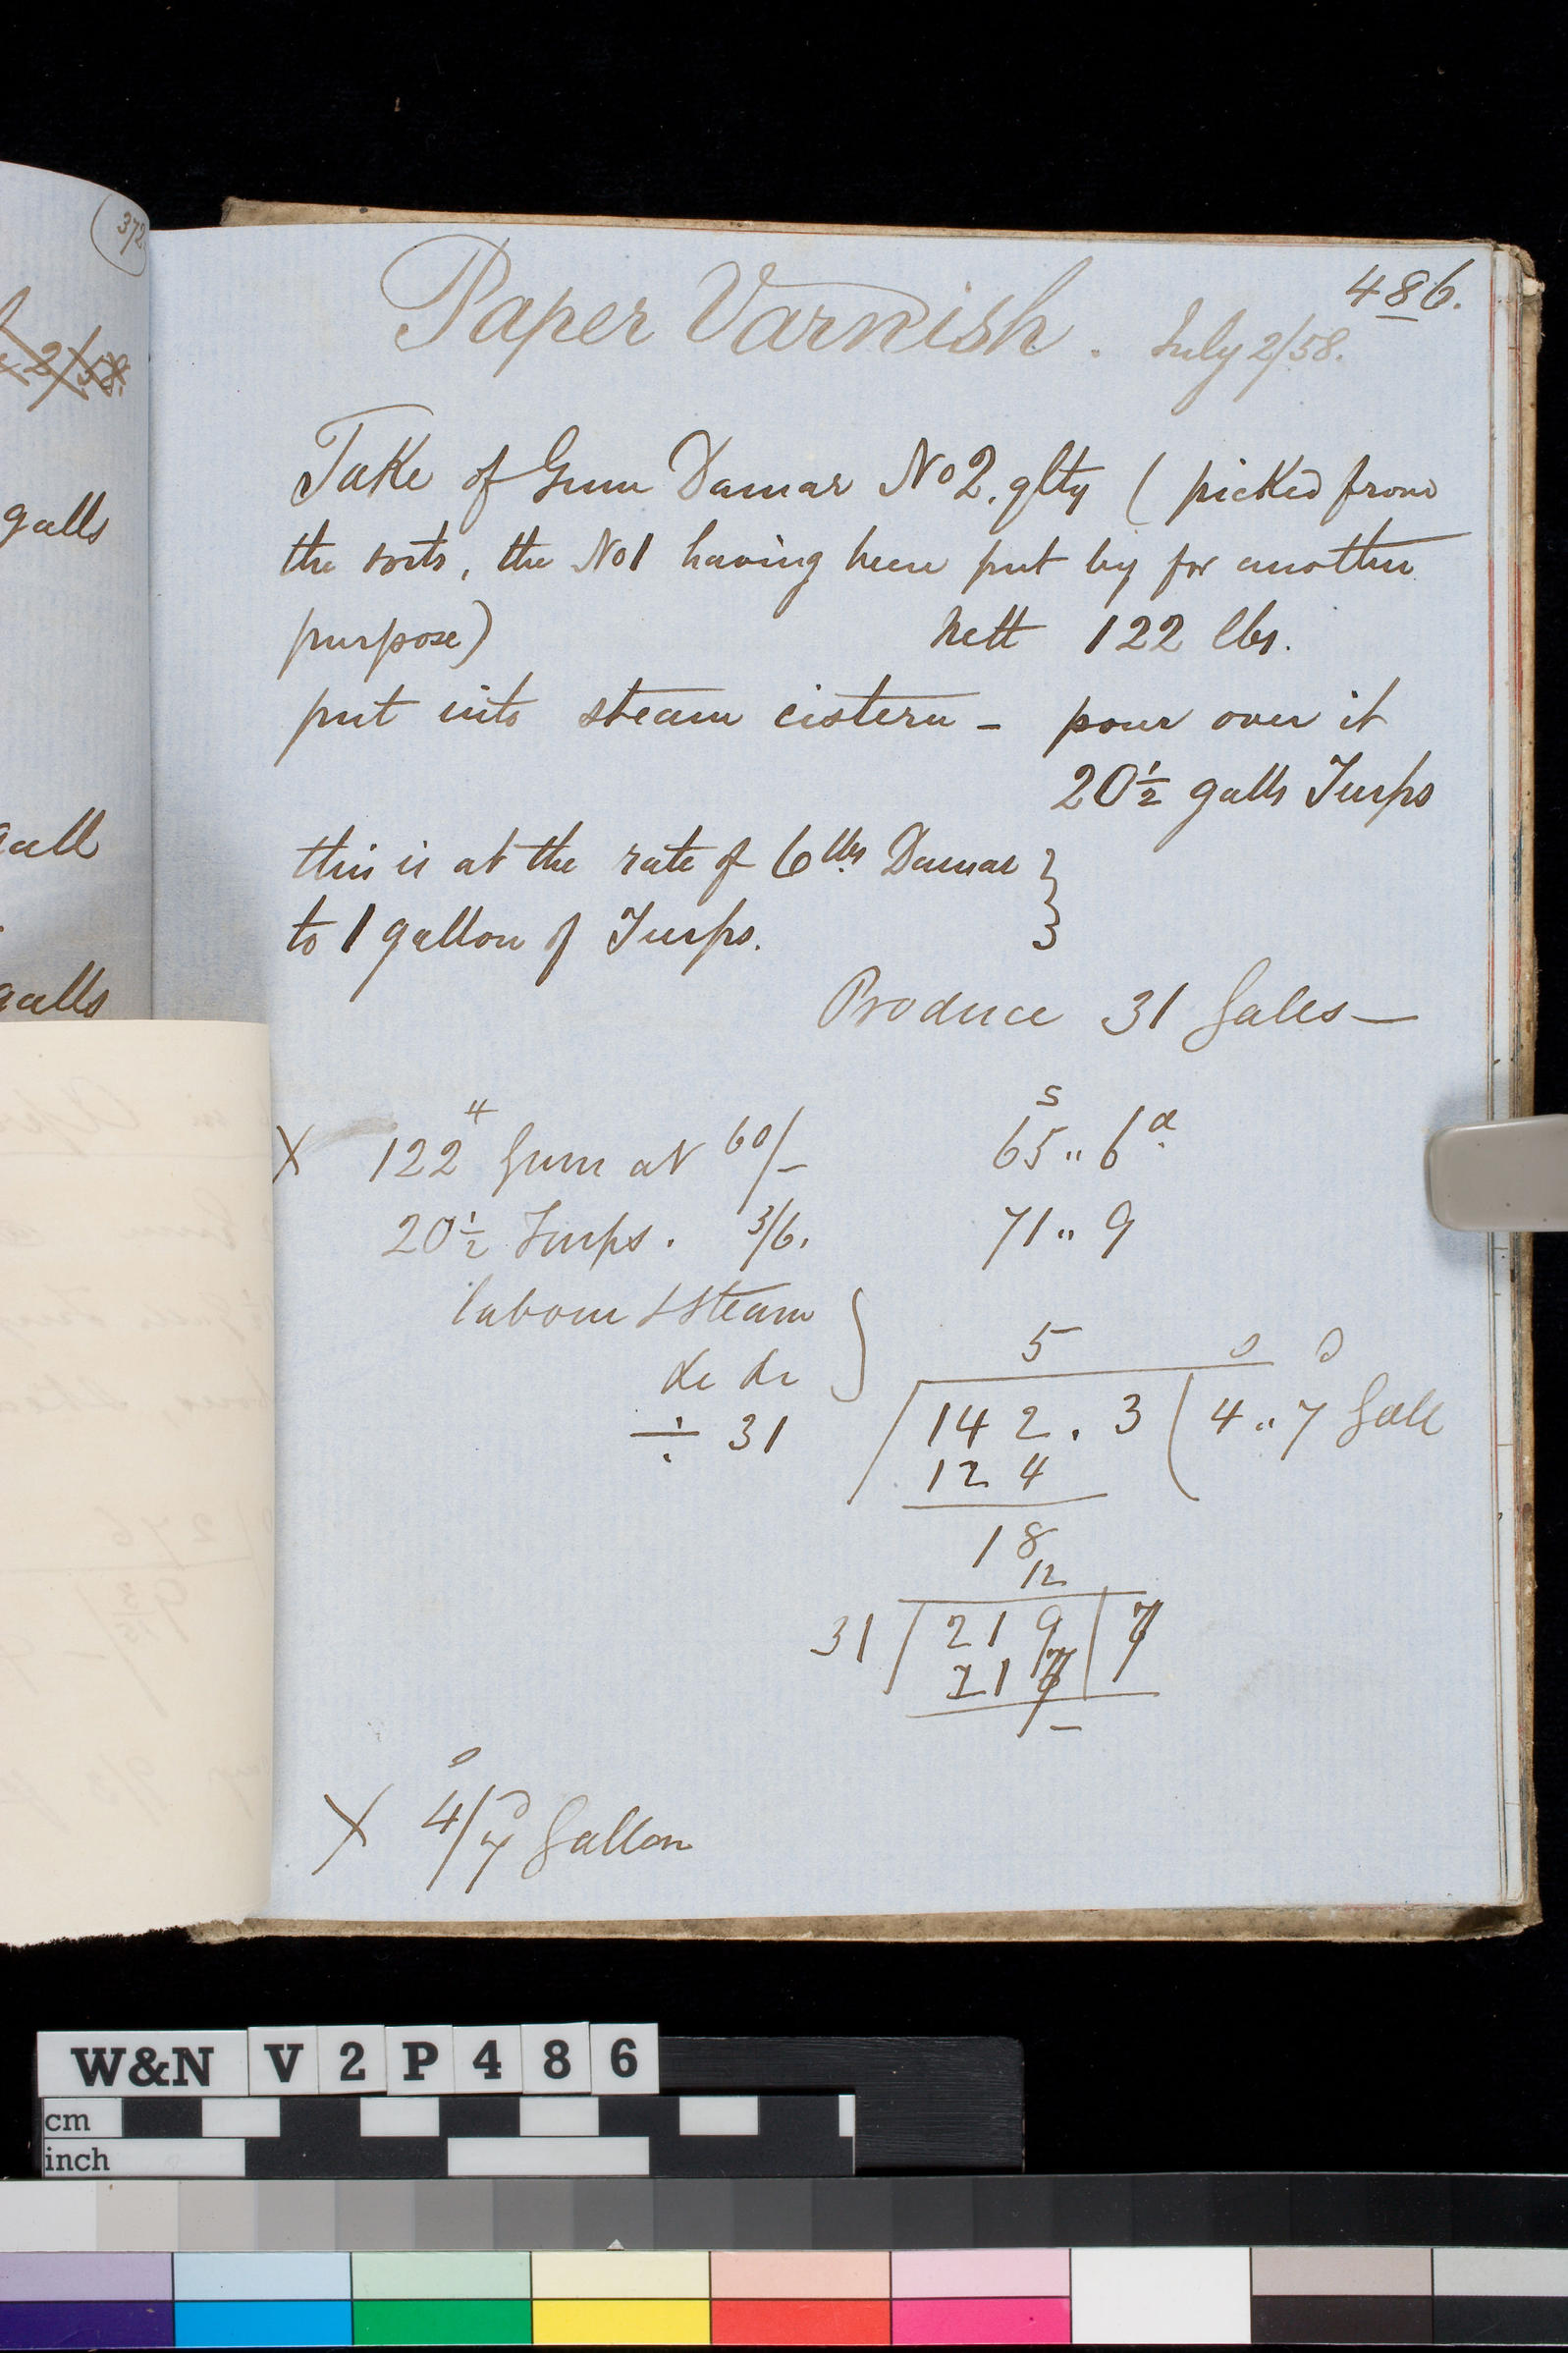 372
2/58.
galls
gall
galls
486.
Paper Varnish. July 2/58.
Take of Gum Damar No 2. qlty ( picked from
the sorts, the No 1 having been put by for another
purpose) nett 122 lbs.
put into steam cistern - pour over it
20 1/2 galls Turps
this is at the rate of 6 lbs. Damar }
to 1 gallon of Turps.
Produce 31 Galls —
X 122 # Gum at 60/- 65 s " 6 d
20 1/2 Turps. 3/6. 71 " 9
labour & steam }
&c &c 5
s d
÷ 31 142.3 ( 4 " 7 Gall
124
18
12
31 219 7
217
-
X 4 s/7 d Gallon
W&N V2P486
cm
inch